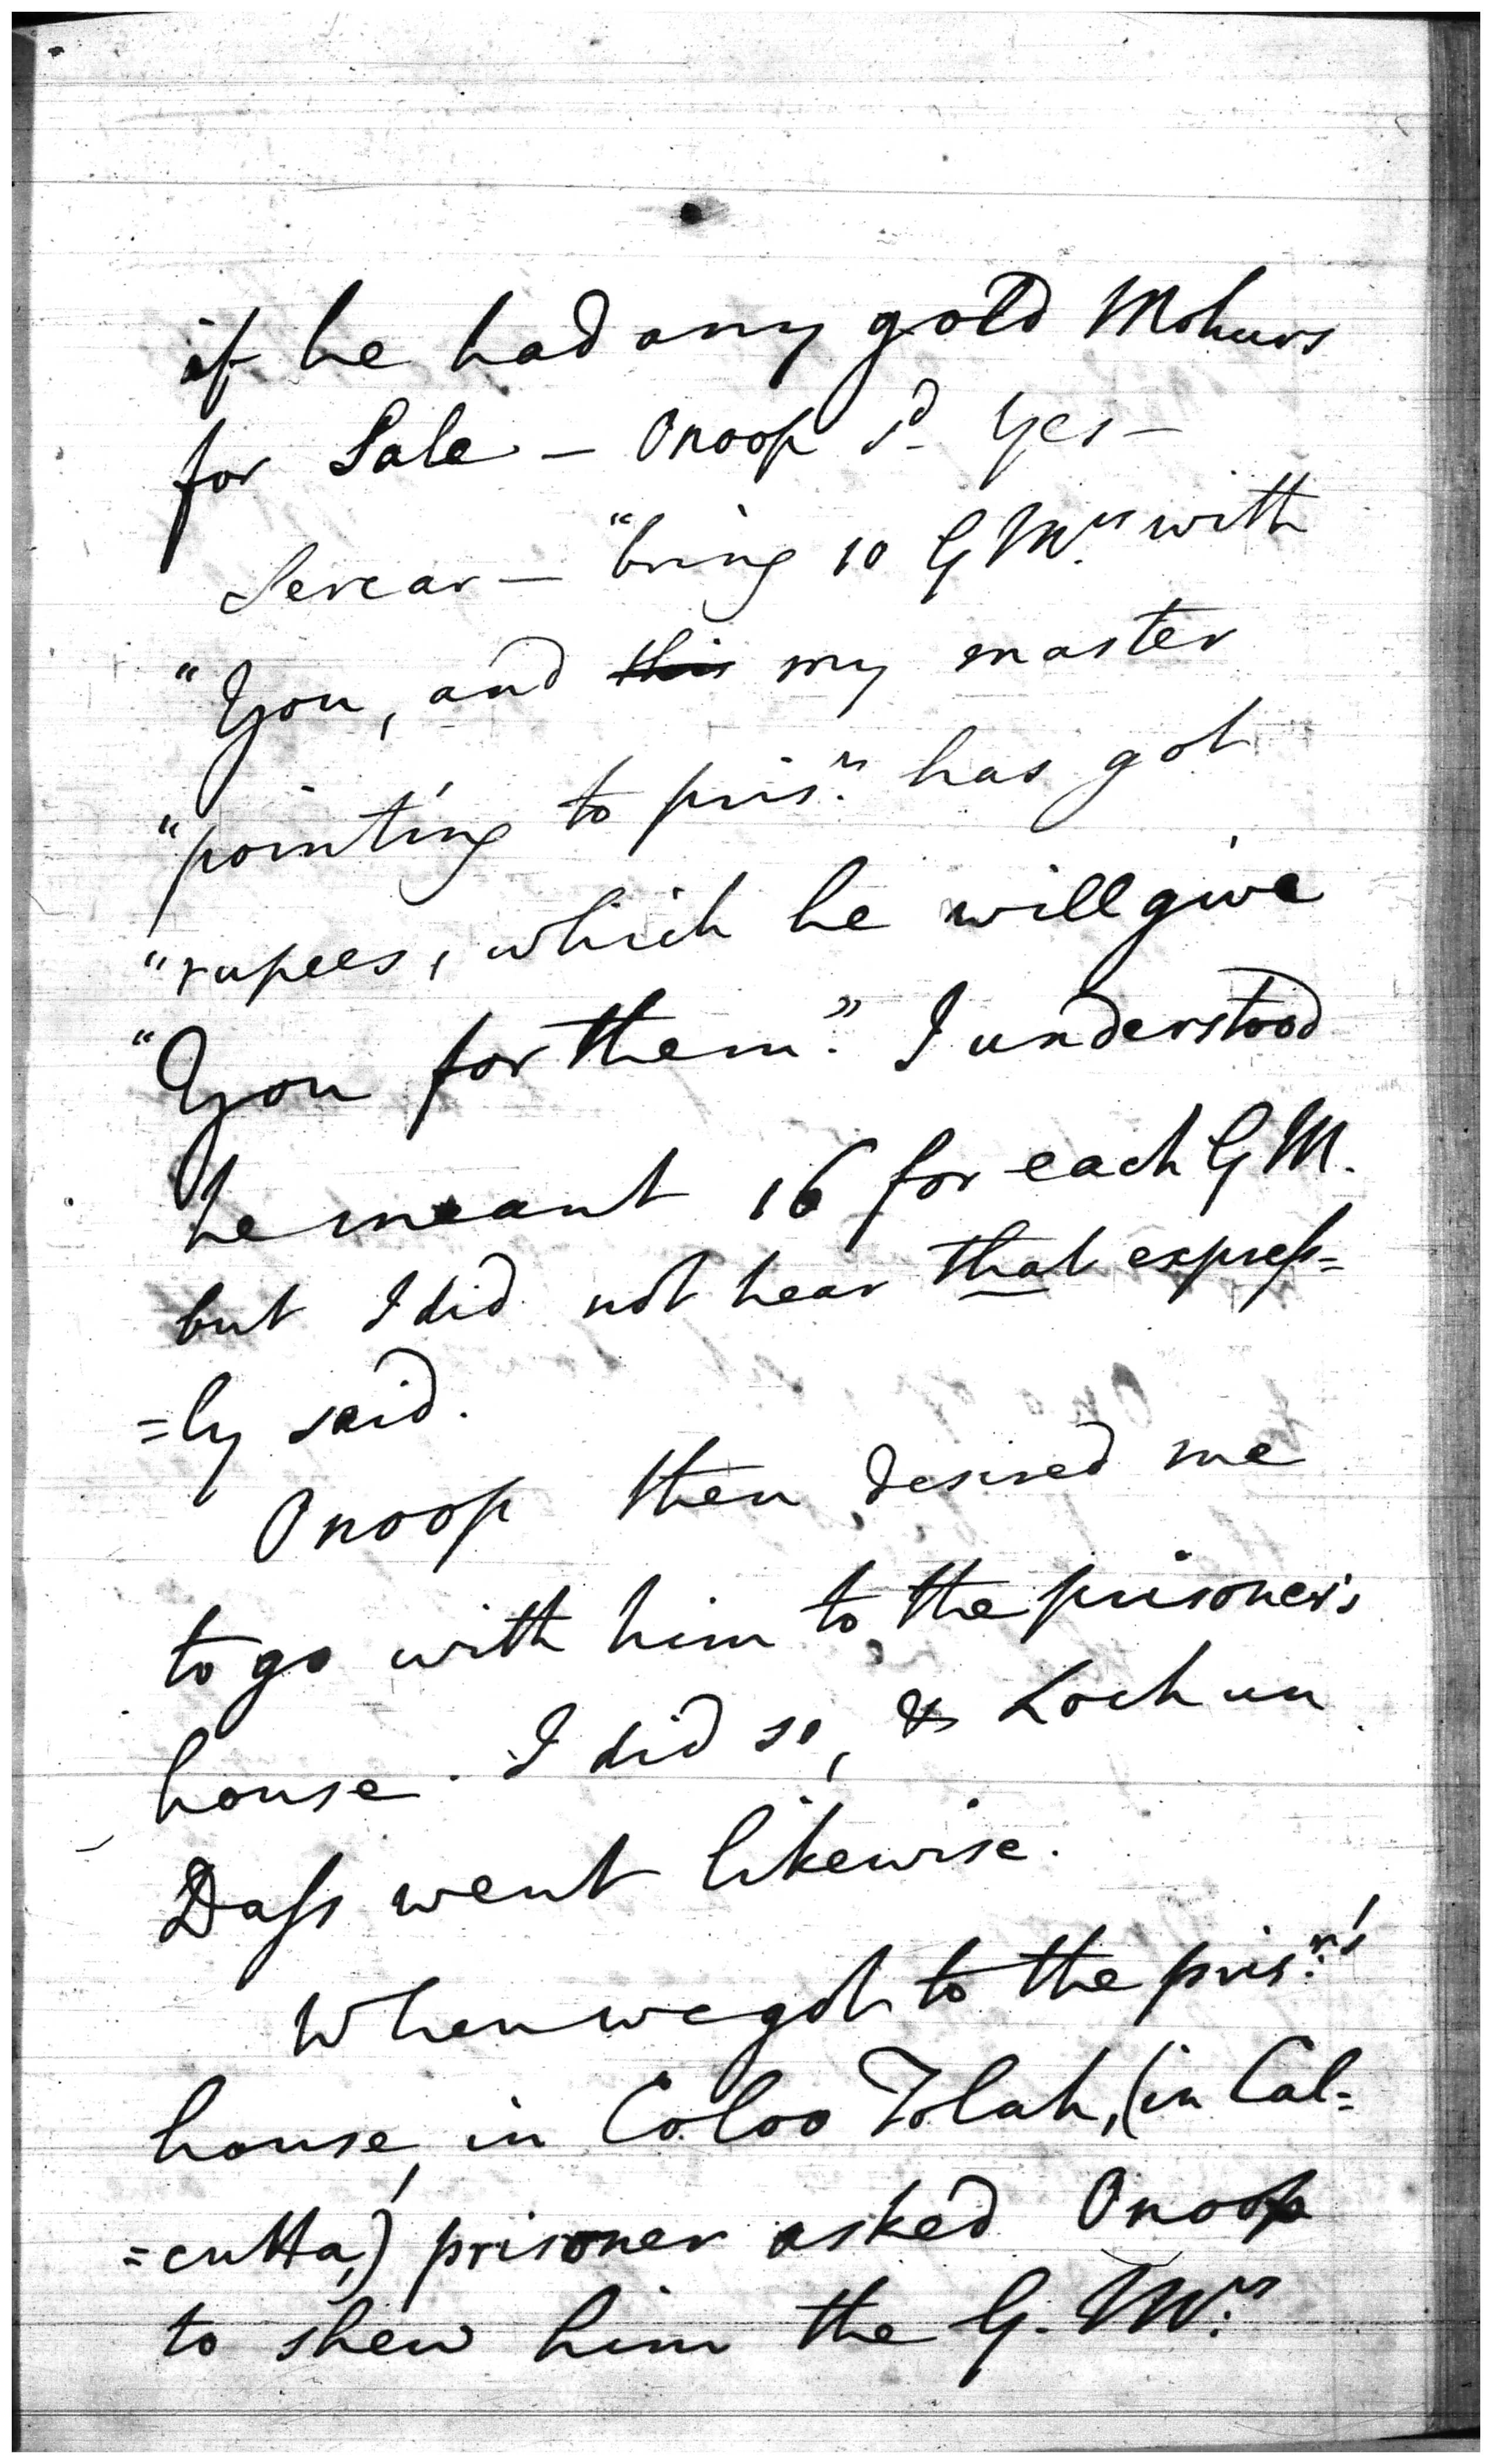 if he had any gold Mohurs
for Sale – Onoop sd. Yes –
Sercar – "bring 10 G Mrs. with
"You, and this my master
"pointing to prisr. has got
"rupees, which he will give
"You for them." I understood
he meant 16 for each G M.
but I did not hear that expreſs=
=ly said.
Onoop then desired me
to go with him to the prisoner's
house. I did so, & Lochun
Daſs went likewise.
When we got to the prisr.'s
house, in Coloo Tolah, (in Cal=
=cutta,) prisoner asked Onoop
to shew him the G. Mrs.